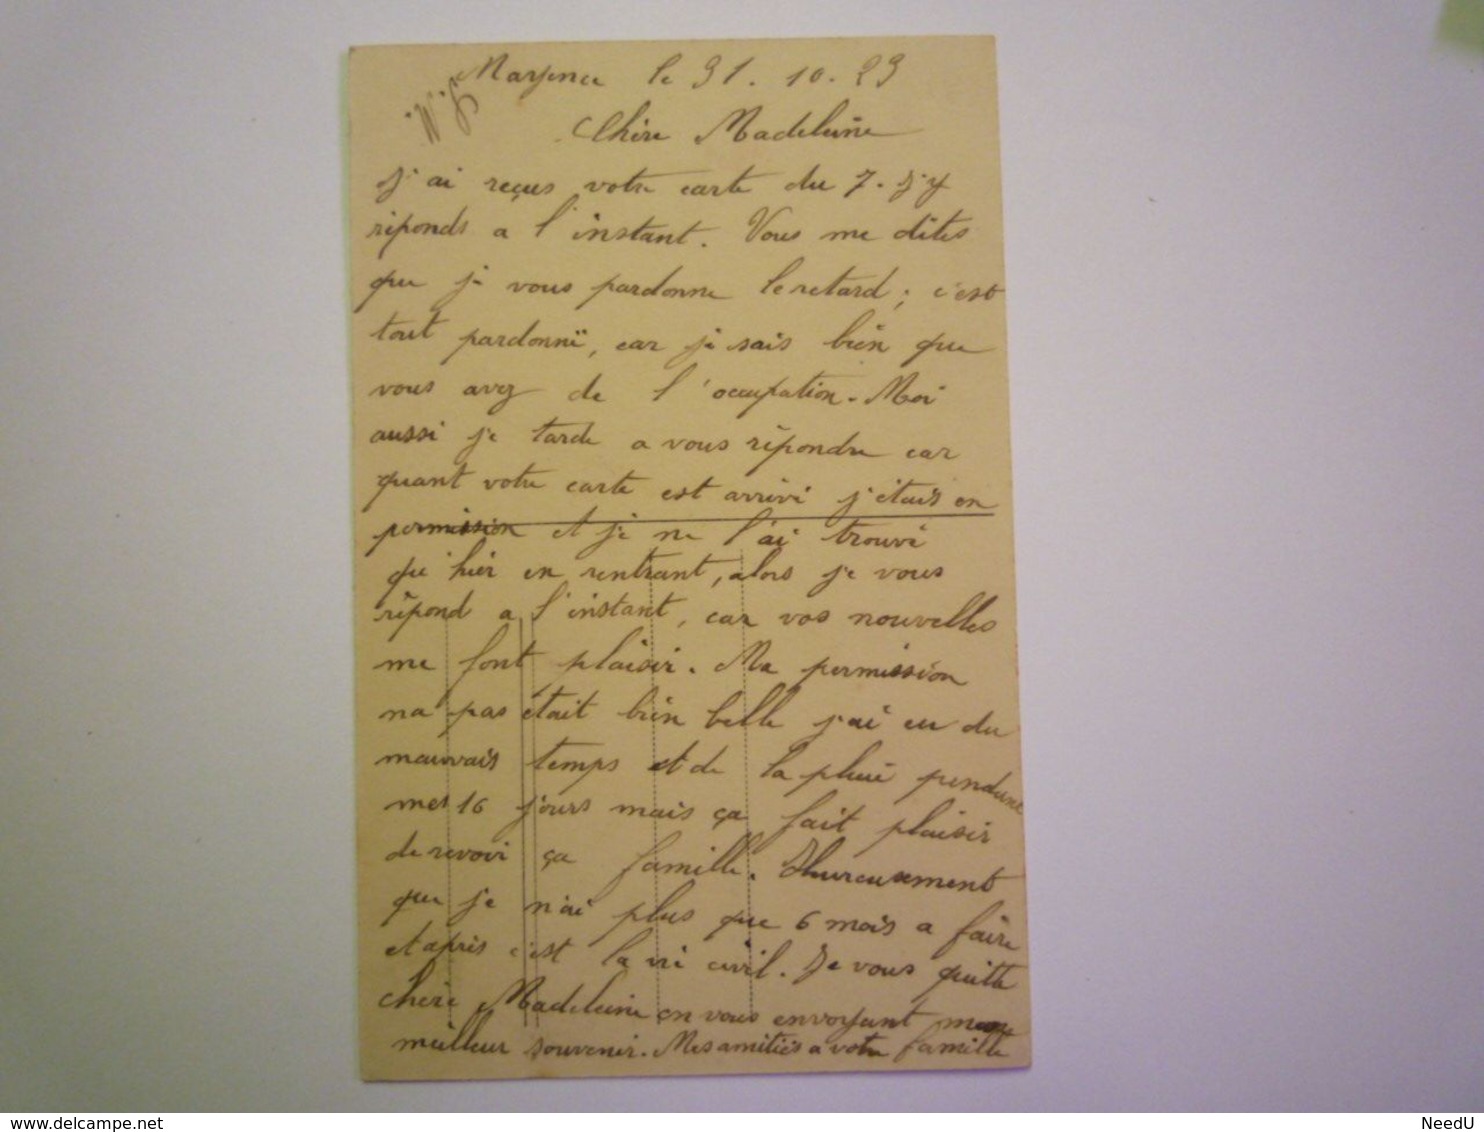 Mayence le 31. 10. 23
Chère Madeleine
j'ai reçus votre carte du 7. j'y
réponds a l'instant. Vous me dites
que je vous pardonne le retard; c'est
tout pardonné, car je sais bien que
vous avez de l'occupation. Moi
aussi je tarde a vous répondre car
quant votre carte est arrivé j'étais en
permission et je ne l'ai trouvé
qu'hier en rentrant, alors je vous
répond a l'instant, car vos nouvelles
me font plaisir. Ma permission
na pas était bien belle j'ai eu du
mauvais temps et de la pluie pendant
mes 16 jours mais ça fait plaisir
de revoir ça famille. Heureusement
que je n'ai plus que 6 mois a faire
et après c'est la vie civil. Je vous quitte
chère Madeleine en vous envoyant mon
meilleur souvenir. Mes amitiés a votre famille
NeedU
www.delcampe.net